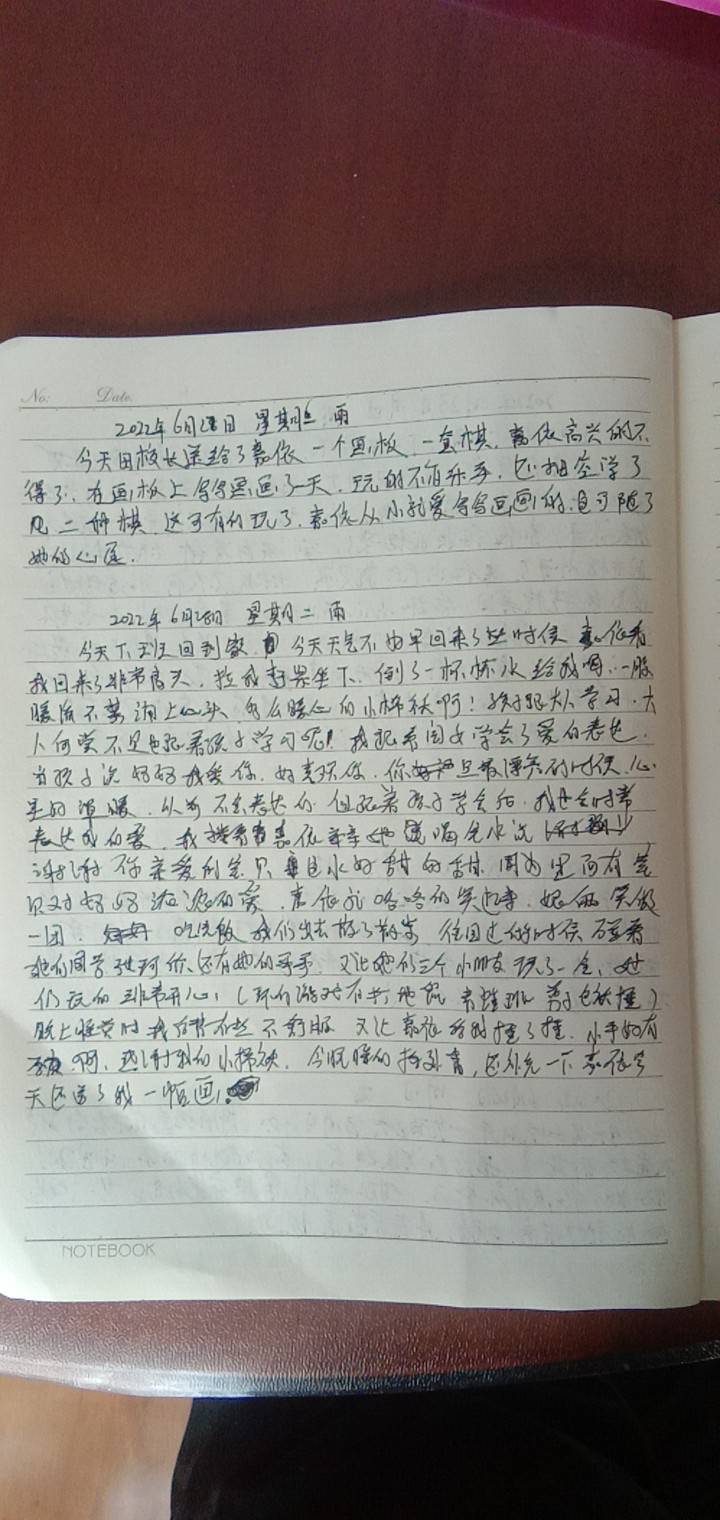 No: Date.
2022年6月28日 星期 雨
今天田校长送给了嘉依一个画板,一套棋,嘉依高兴的不
得了,在画板上写写画画了一天,玩的不亦乐乎,还相空学了
几二种棋,这可有的玩了,嘉依从小就爱写写画画的,这可随了
她的心愿.
2022年6月28日 星期二 雨
今天下班回到家,今天天气不 早回来了些时候 嘉依看
我回来了非常高兴,拉我 坐下,倒了一杯水给我喝,一股
暖流不禁涌上心头 多么暖心的小棉袄啊!孩子跟大人学习,大
人何尝不是也跟着孩子学习呢!我跟着闺女学会了爱的表达.
当孩子说妈妈我爱你,好喜欢你,你 真漂亮的时候,心
里的温暖.从前不会表达的 但跟着孩子学会后,我也会时常
表达我的爱,我 嘉依 她 喝完水说
谢谢你亲爱的宝贝 这水好甜的甜 因为里面有宝
贝对妈妈浓浓的爱,嘉依就咯咯的笑起来,娘俩笑做
一团. 吃完饭 我们出去散了散步 往回走的时候 碰着
她们同学 还有她的哥哥,又让她们三个小朋友玩了一会,她
们玩的非常开心,(玩的游戏有
晚上睡觉时我后背有些不舒服 又让嘉依给我捶了捶,小手好有
啊,感谢我的小棉袄.今晚 ,还补充一下嘉依今
天还送了我一幅画,
NOTEBOOK